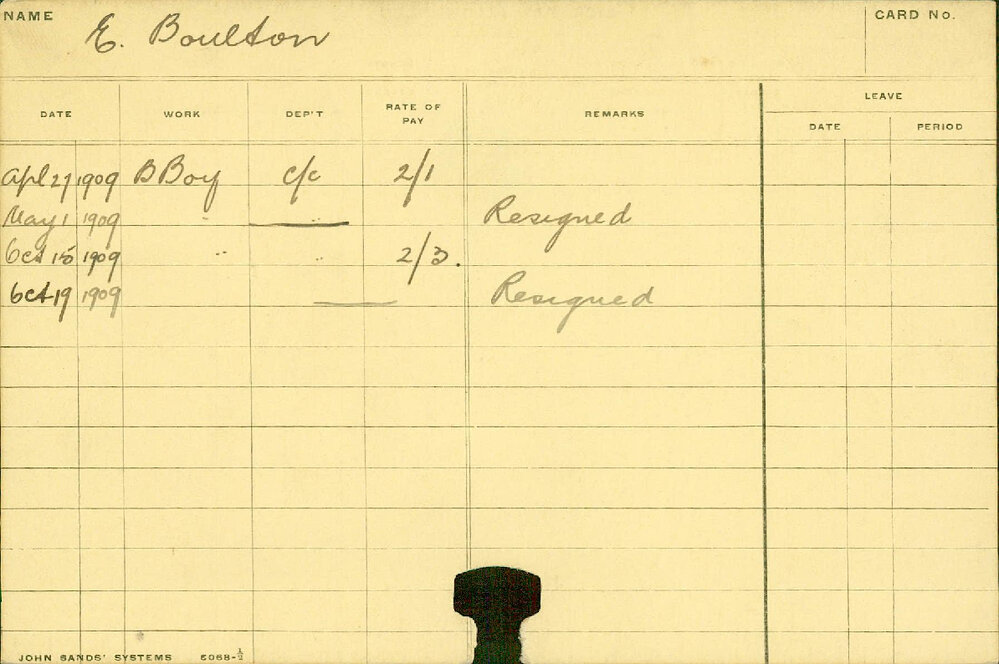 NAME E. Boulton CARD No.
LEAVE
DATE WORK DEP'T RATE OF PAY REMARKS DATE PERIOD
Apl 27 1909 B Boy c/c 2/1
May 1 1909 " Resigned
Oct 15 1909 " " 2/3.
Oct 19 1909 Resigned
JOHN SANDS' SYSTEMS 6068-½